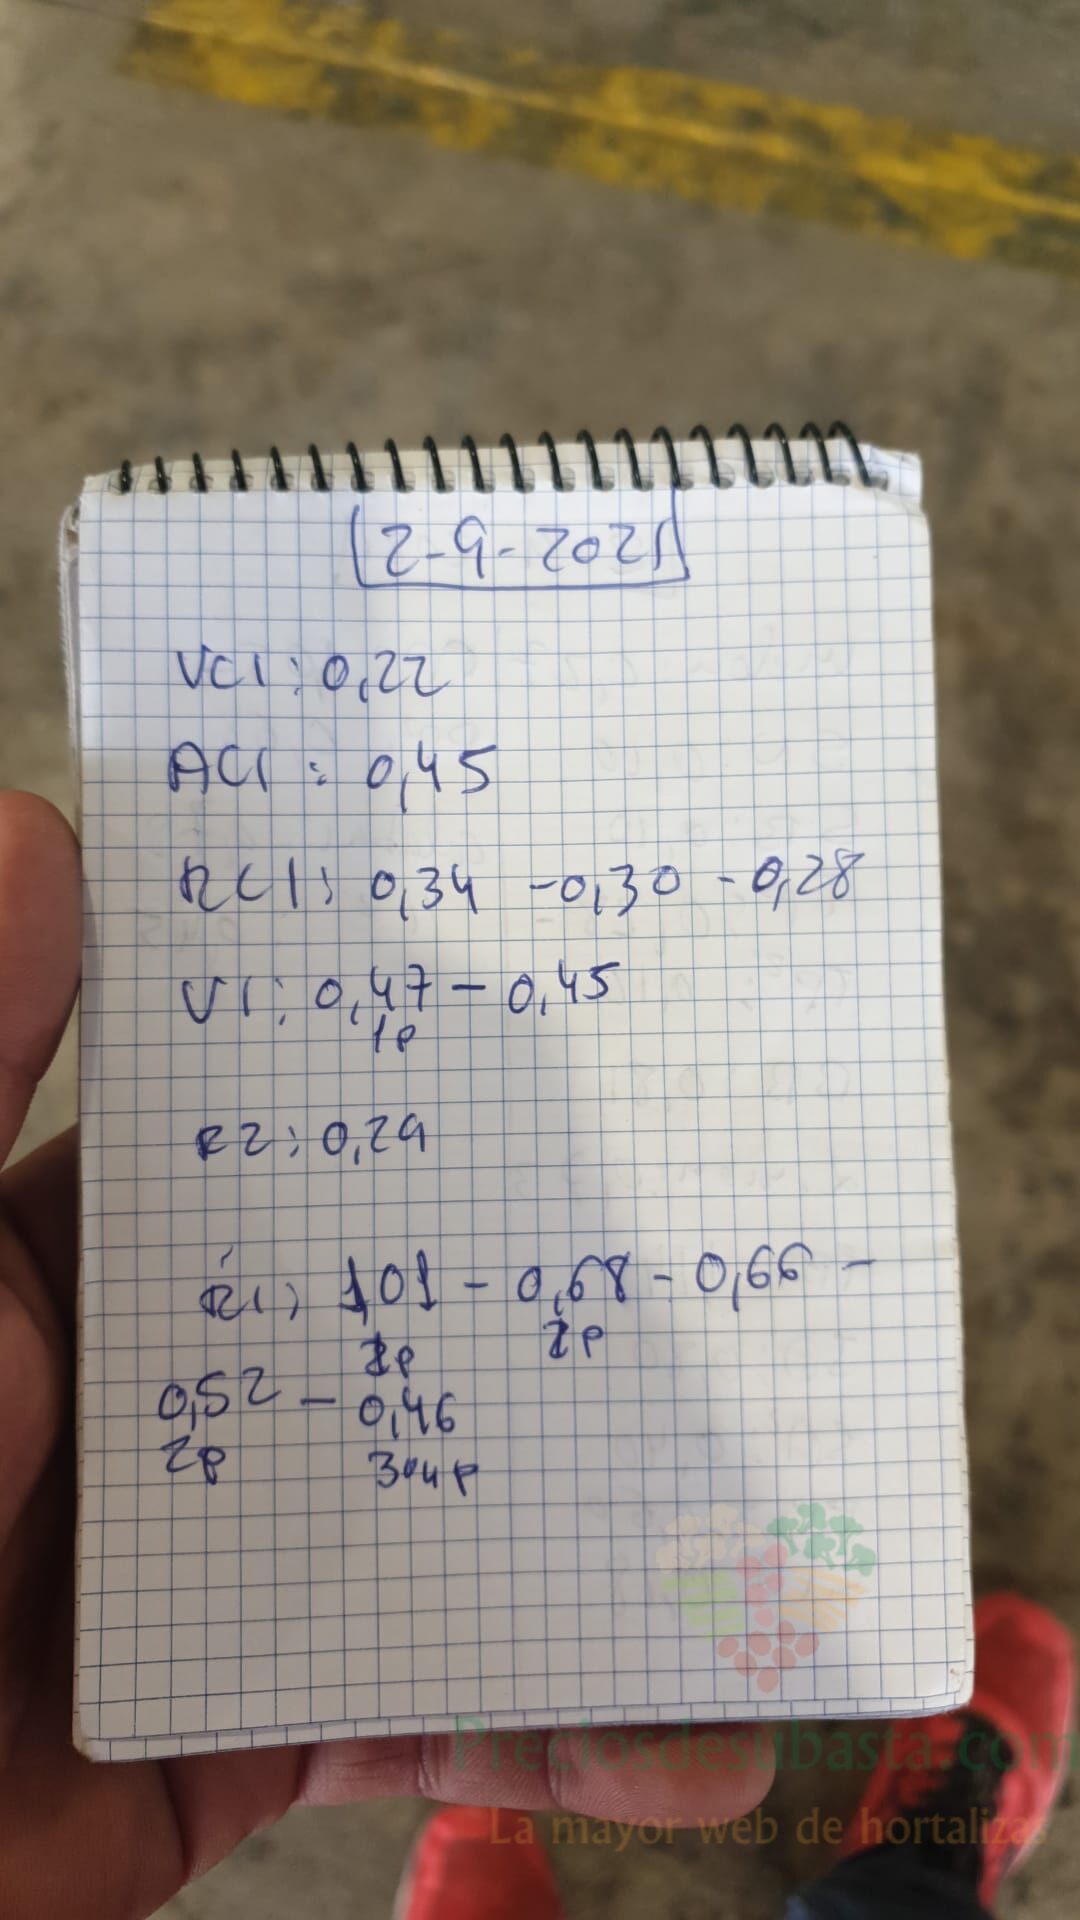 2-9-2021
VC1: 0,22
AC1: 0,45
RC1: 0,34 -0,30 -0,28
V1: 0,47 - 0,45
1p
R2: 0,29
R1: 1,01 - 0,68 - 0,66 -
1p 1p
0,52 - 0,46
2p 304p
Preciosdesubasta.com
La mayor web de hortalizas